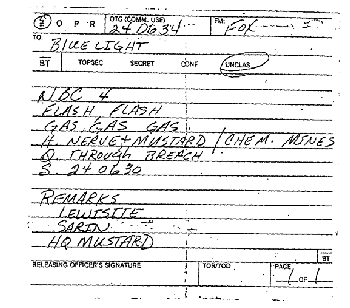 Z O P R DTG (COMM. USE) 24 0634 FM: Fox
TO
BLUE LIGHT
BT TOPSEC SECRET CONF UNCLAS
NBC 4
FLASH, FLASH
GAS, GAS GAS
H. NERVE + MUSTARD / CHEM. MINES
Q. THROUGH BREACH
S. 240630
REMARKS
LEWISITE
SARIN
HQ MUSTARD
BT
RELEASING OFFICER'S SIGNATURE TOR/TOD PAGE
1 OF 1